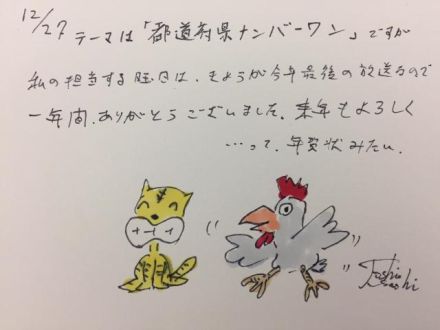 12/27
テーマは「都道府県ナンバーワン」ですが
私の担当する曜日は、きょうが今年最後の放送なので
一年間、ありがとうございました。来年もよろしく
…って、年賀状みたい。